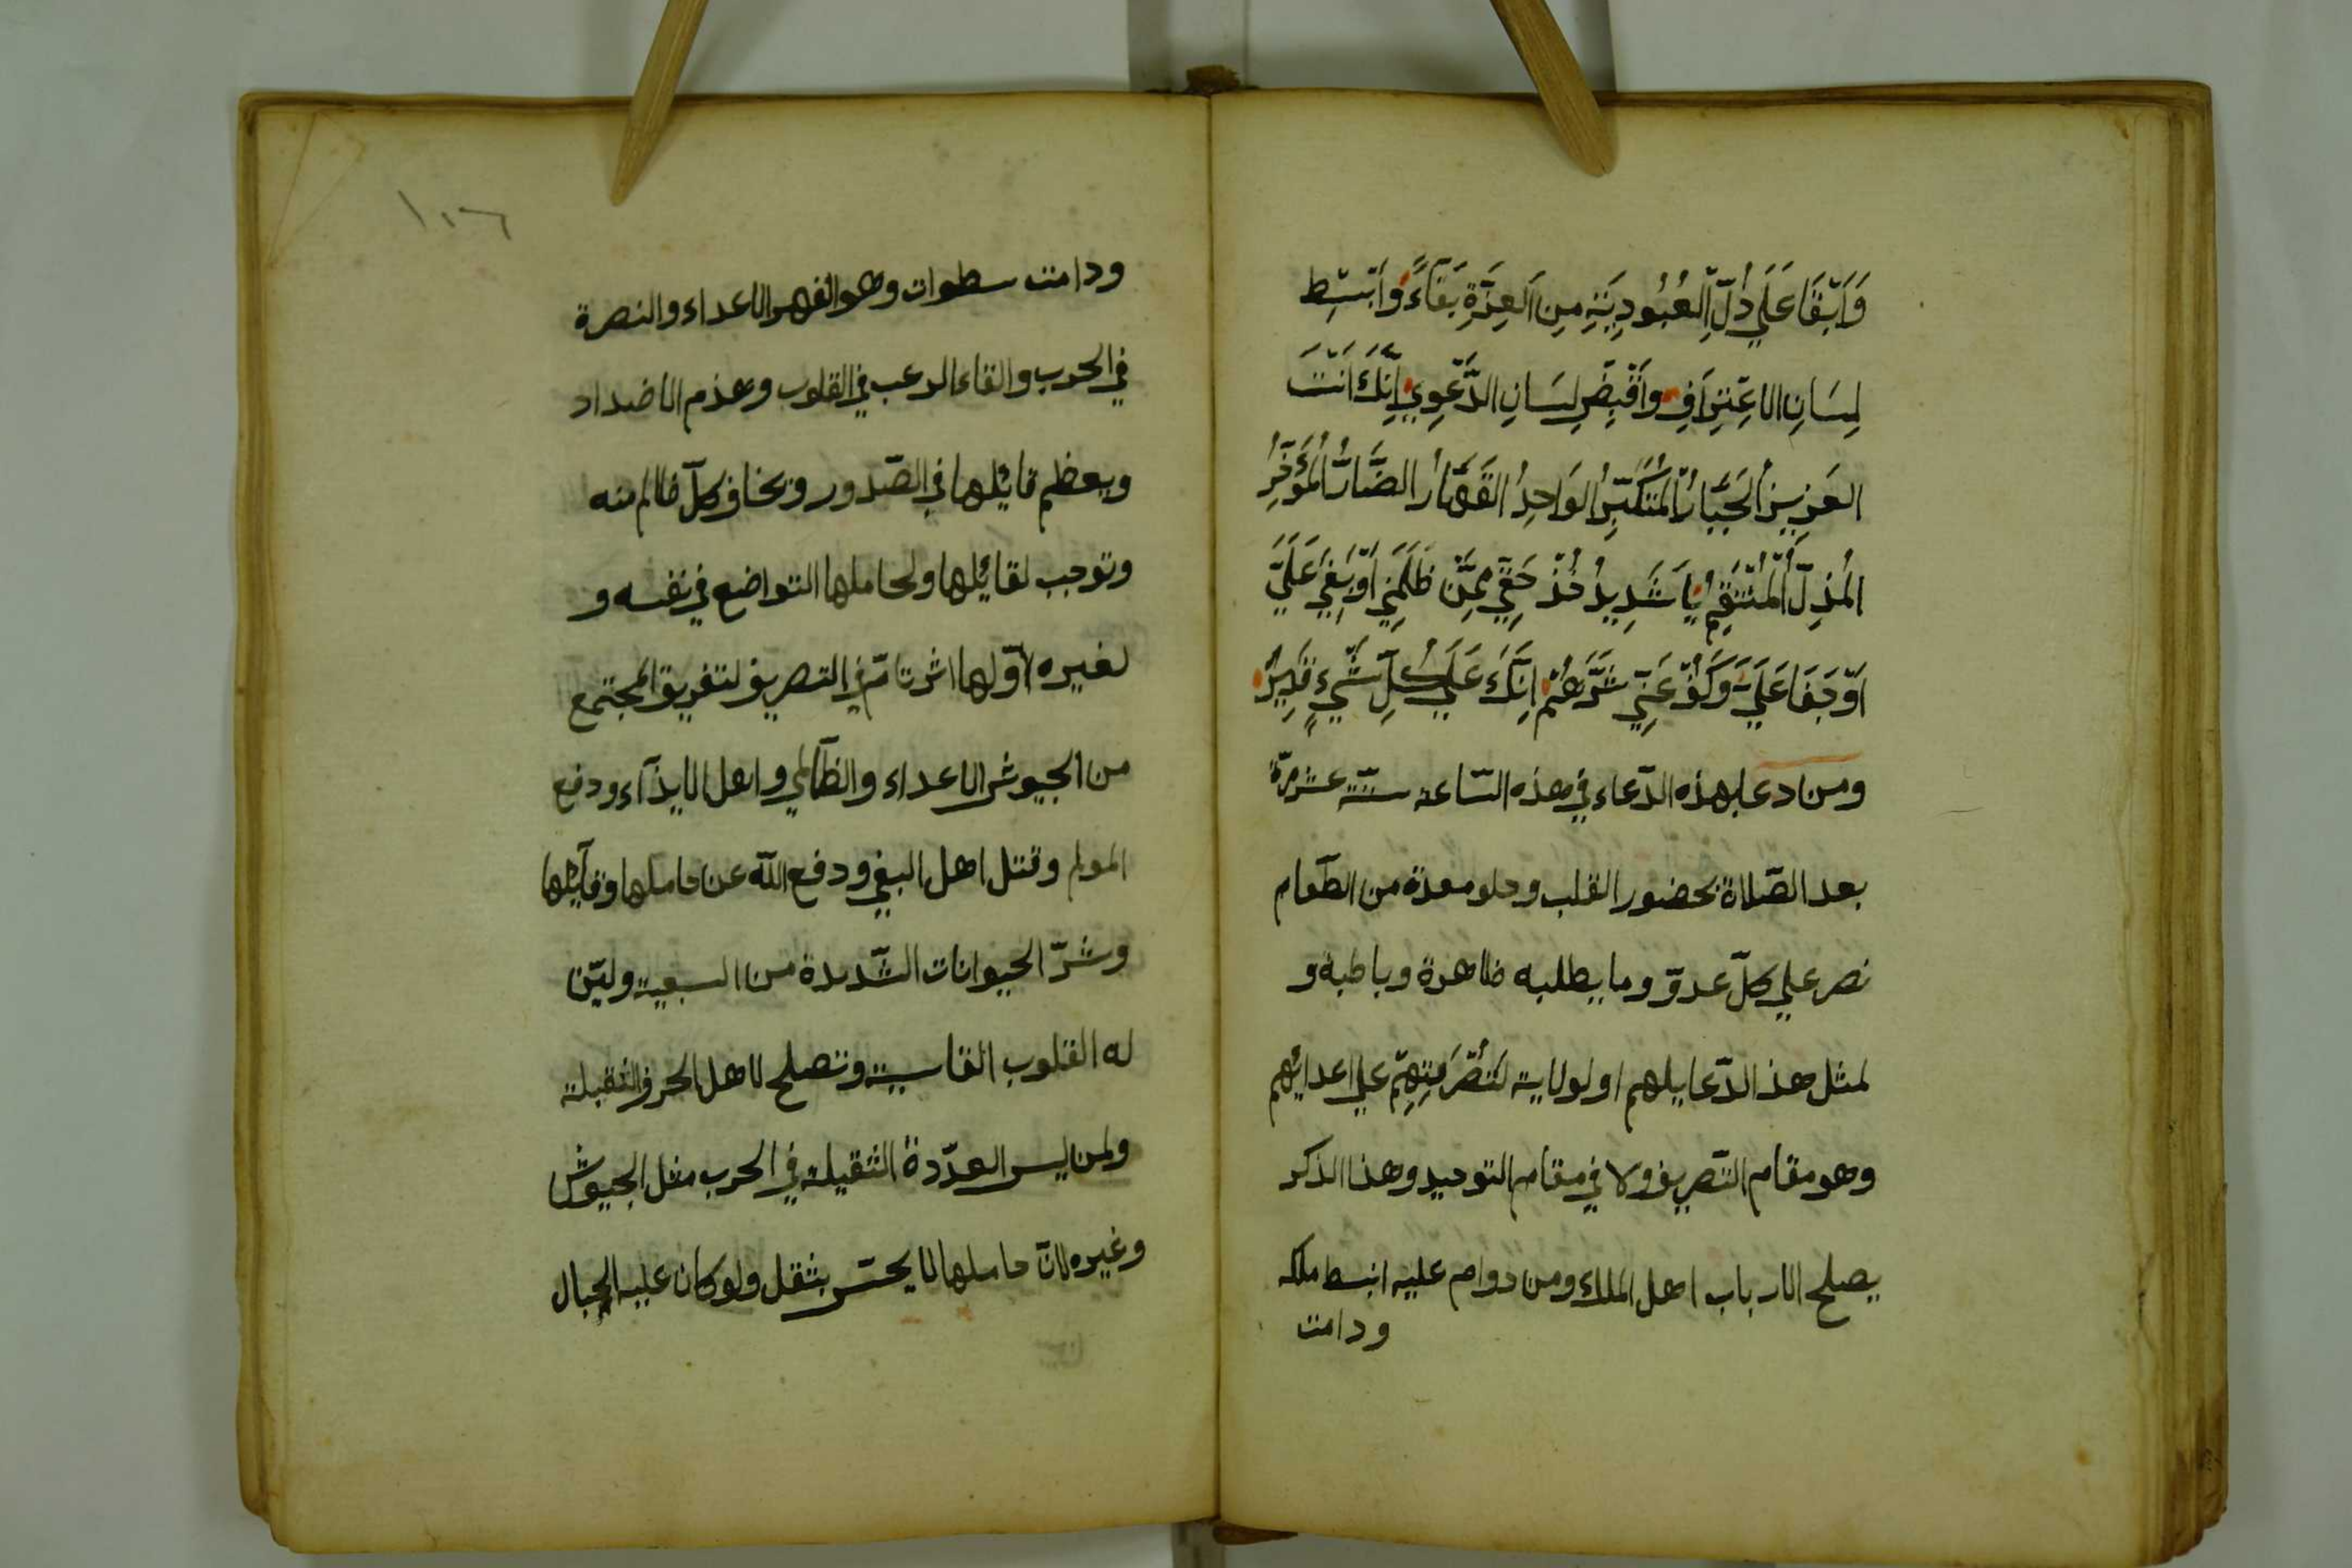 وَاَبْقَا عَلَي ذُلِّ الْعُبُودِيَّةِ مِنِ الْعِزَّةِ بَقَآءً وَاَبْسِطْ
لِسَانِ الاعْتِرَافِ وَاَقْبِضْ لِسَانِ الدَّعْوِي اِنَّكَ اَنْتَ
العَزِيزُ الجَبَّارُ المُتَكَبِّرُ الوَاحِدُ القَهَّارُ الضَّارُّ المُؤَخِّرُ
المُذِلُّ المُنْتَقِمُ يَا شَدِيدُ خُذْ حَقِّي مِمَّنْ ظَلَمَنِي اَوْ بَغِيَ عَلَيَّ
اَوْ جَفَا عَلَيَّ وَكُفَّ عَنِّي شَرَّهُمْ اِنَّكَ عَلَي كُلِّ شَيْءٍ قَدِيرُ
ومن دعا بهذه الدّعاء في هذه السّاعة ستّة عشر مرّة
بعد الصّلاة بحضور القلب وخلو معدة من الطّعام
نصر علي كلّ عدوّ وما يطلبه ظاهرة وباطنة و
لمثل هذ الدّعا يلهم اولولاية لنُصْرَتِهِمْ علي اعدائهم
وهو مقام التّصريف ولا في مقام التوحيد وهذا الذكر
يصلح الارباب اهل الملك ومن دوام عليه انبسط ملكه
ودامت
١٠٦
ودامت سطوات وهو القهر الاعداء والنصرة
في الحرب والقاء الرعب في القلوب وعدم الاضداد
ويعظم قائلها في الصّدور ويخاف كلّ ظالم منه
وتوجب لقائلها ولحاملها التواضع في نفسه و
لغيره اوّلها اثر تامّ في التصريف لتفريق المجتمع
من الجيوش الاعداء والظّالمي واهل الايذآء ودفع
المولم وقتل اهل البغي ودفع اللّه عن حاملها وقآئلها
وشرّ الحيوانات الشّديدة من السبعية وليّن
له القلوب القاسية وتصلح لاهل الحرف الثقيلة
ولمن لبس العدّدة الثقيلة في الحرب مثل الجيوش
وغيره لانّ حاملها لا يحسّ بثقل ولو كان عليه الجبال